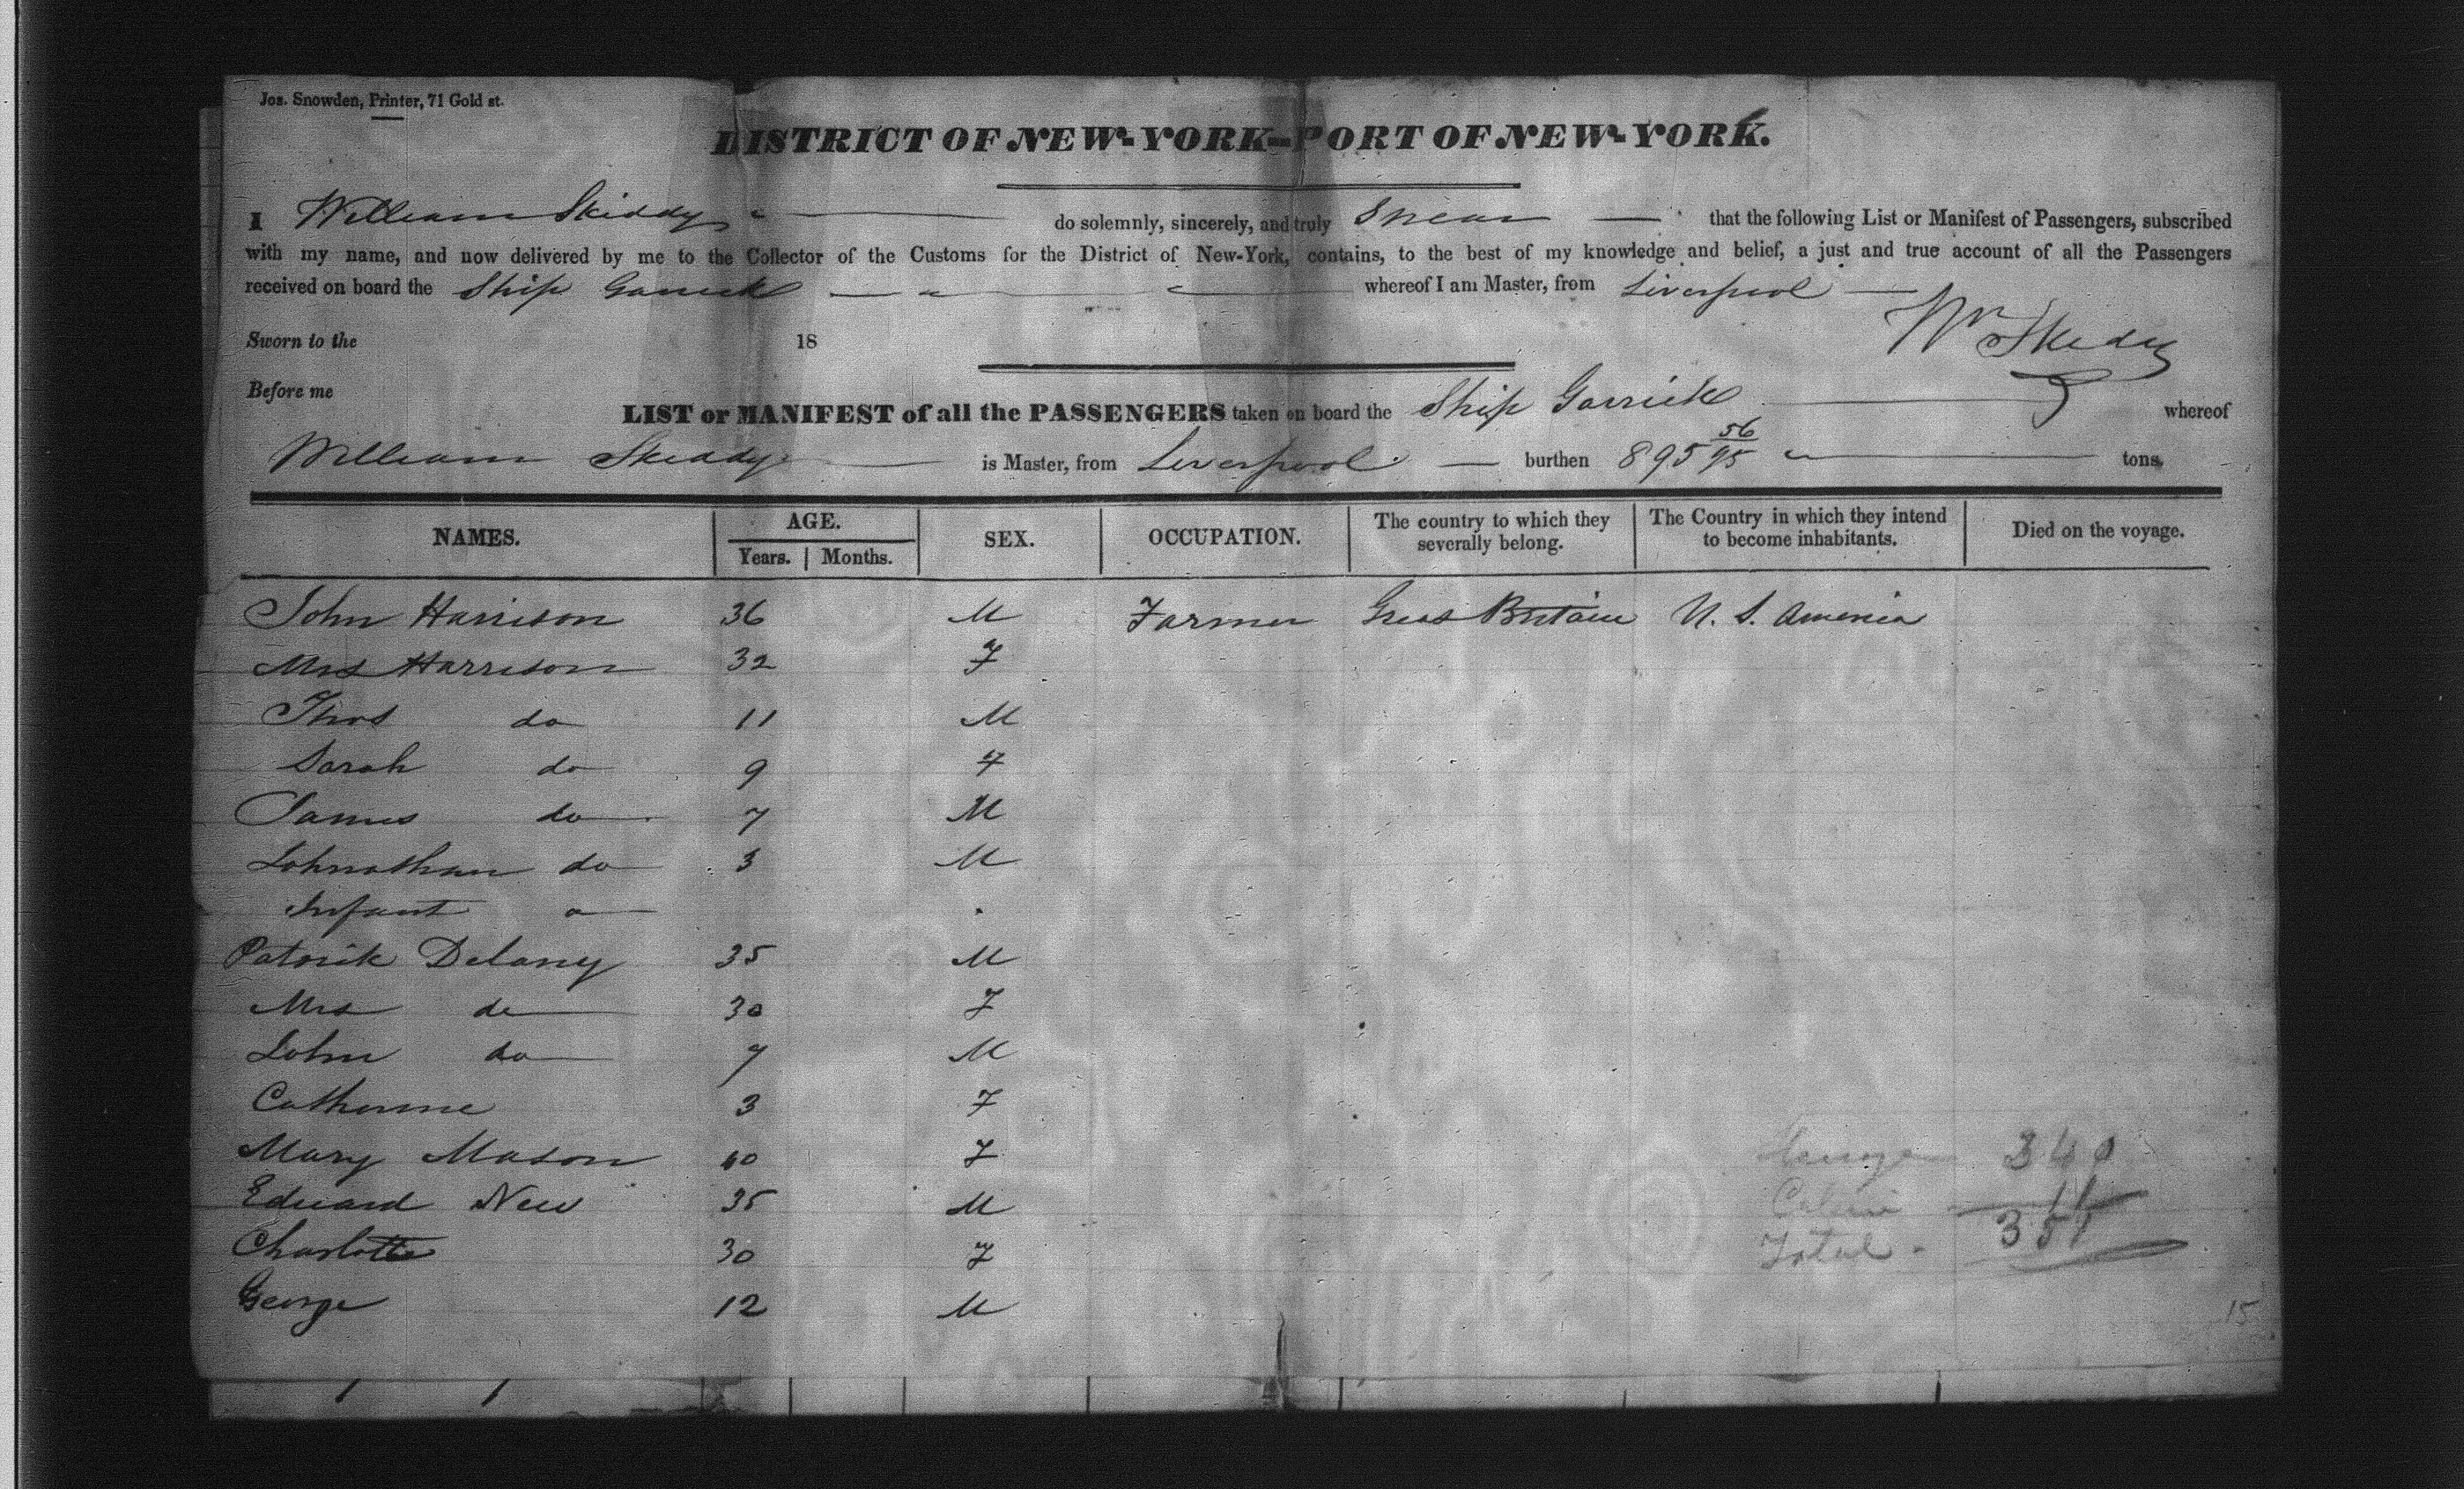 Jos. Snowden, Printer, 71 Gold st.
DISTRICT OF NEW-YORK--PORT OF NEW-YORK.
I William Skiddy do solemnly, sincerely, and truly Swear that the following List or Manifest of Passengers, subscribed
with my name, and now delivered by me to the Collector of the Customs for the District of New-York, contains, to the best of my knowledge and belief, a just and true account of all the Passengers
received on board the Ship Garrick whereof I am Master, from Liverpool
Wm Skiddy
Sworn to the 18
Before me
LIST or MANIFEST of all the PASSENGERS taken on board the Ship Garrick whereof
William Skiddy is Master, from Liverpool burthen 895 56/95 tons.
NAMES. AGE. Years. | Months. SEX. OCCUPATION. The country to which they severally belong. The Country in which they intend to become inhabitants. Died on the voyage.
John Harrison 36 M Farmer Great Britain U. S. America
Mrs Harrison 32 F
Thos do 11 M
Sarah do 9 F
James do 7 M
Johnathan do 3 M
Infant
Patrick Delany 35 M
Mrs do 30 F
John do 7 M
Catherine 3 F
Mary Mason 40 F
Edward New 35 M
Charlotte 30 F
George 12 M
340
Cabin 11
Total 351
15